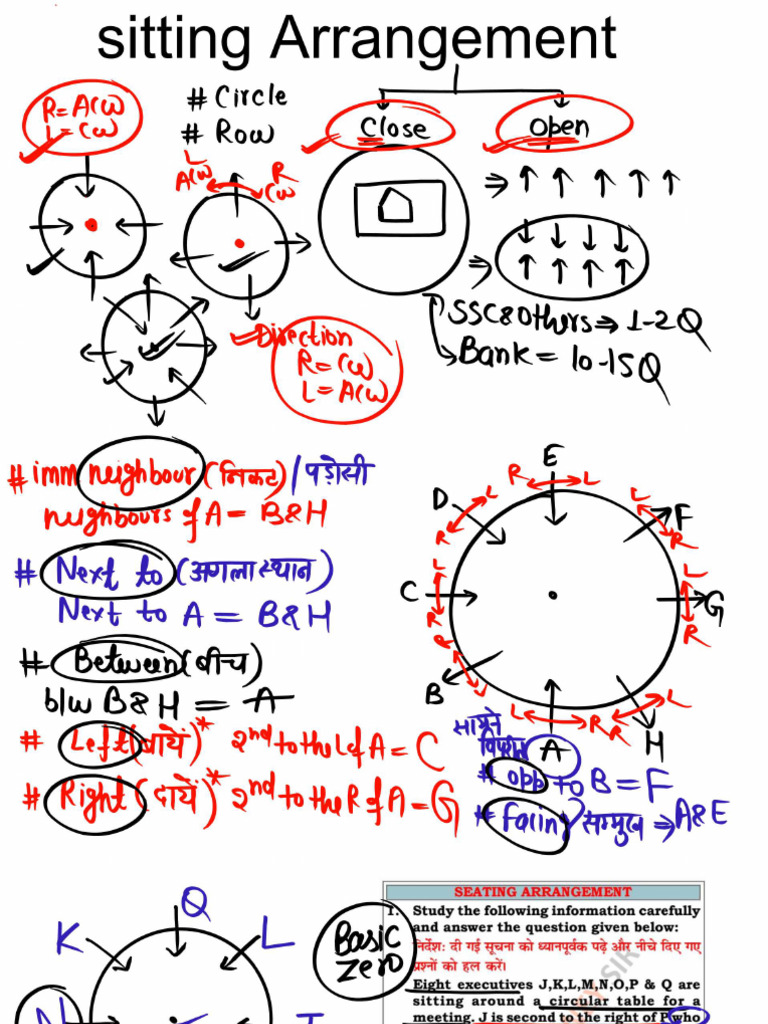 sitting Arrangement
R=A(ω
L=(ω
# Circle
# Row
Close
Open
L
A(ω
R
(ω
SSC&Others⇒1-2Q
Bank = 10-15Q
Direction
R=(ω
L=A(ω
# imm neighbour (निकट) / पड़ोसी
neighbours of A = B&H
# Next to (अगला स्थान)
Next to A = B&H
# Between (बीच)
b/w B&H = A
# Left (बायें)* 2nd to the L of A = C
# Right (दायें)* 2nd to the R of A = G
E
R L
D
L
R
L
F
R
C
L
R
L
G
R
R
B
L
L R
A
R L
H
सामने
विपरीत
# opp to B = F
# facing सम्मुख ⇒ A&E
Q
K
L
Basic
Zero
SEATING ARRANGEMENT
1. Study the following information carefully
and answer the question given below:
निर्देश: दी गई सूचना को ध्यानपूर्वक पढ़े और नीचे दिए गए
प्रश्नों को हल करें।
Eight executives J,K,L,M,N,O,P & Q are
sitting around a circular table for a
meeting. J is second to the right of P who
SIR